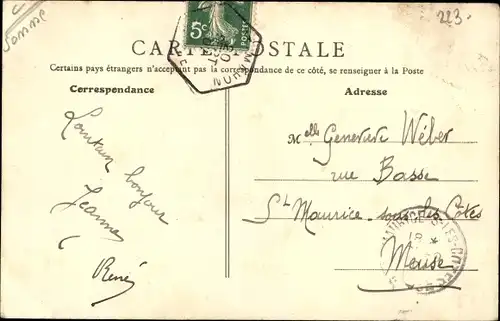 Somme
223.
5c
POSTES
CARTE POSTALE
Certains pays étrangers n'acceptent pas la correspondance de ce côté, se renseigner à la Poste
Correspondance
Adresse
Lointain bonjour
Jeanne
René
Melle Genevieve Wéber
rue Basse
St Maurice-sous-les Côtes
Meuse